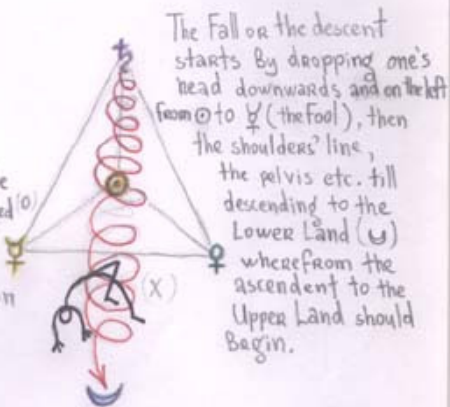 The Fall or the descent
starts By dropping one's
head downwards and on the left
from ☉ to ☿ (the Fool), then
the shoulders' line,
the pelvis etc. till
descending to the
Lower Land (☽)
wherefrom the
ascendent to the
Upper Land should
Begin.
(0)
(X)